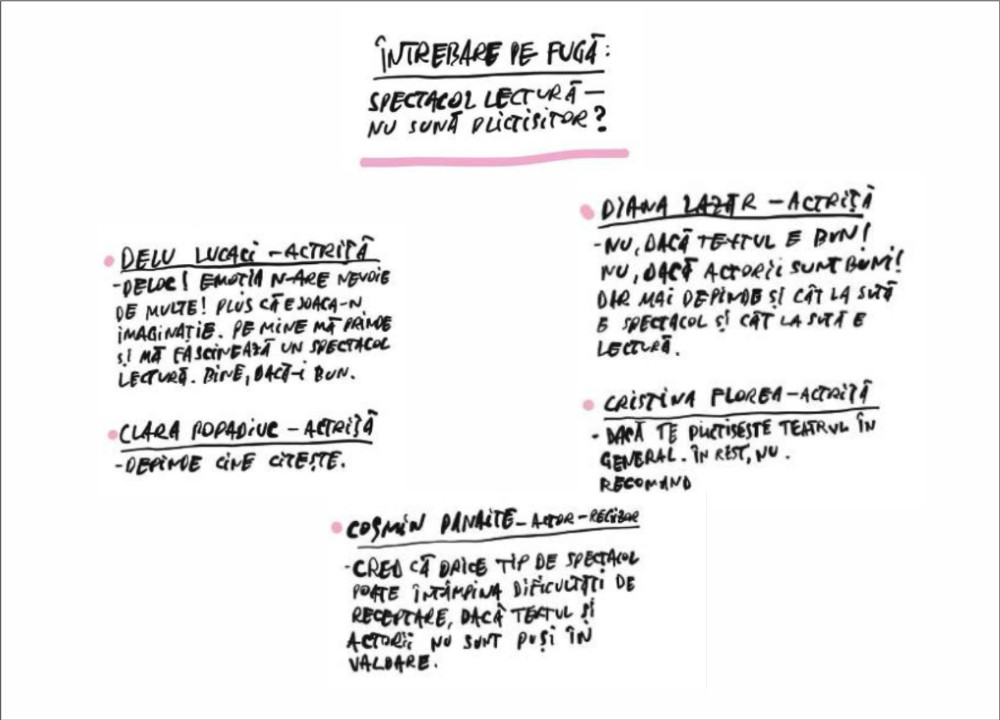 ÎNTREBARE PE FUGĂ:
SPECTACOL LECTURĂ –
NU SUNĂ PLICTISITOR?
DELU LUCACI – ACTRIȚĂ
- DELOC! EMOȚIA N-ARE NEVOIE
DE MULTE! PLUS CĂ E JOACA-N
IMAGINAȚIE. PE MINE MĂ PRINDE
ȘI MĂ FASCINEAZĂ UN SPECTACOL
LECTURĂ. BINE, DACĂ-I BUN.
CLARA POPADIUC – ACTRIȚĂ
- DEPINDE CINE CITEȘTE.
DIANA LAZĂR – ACTRIȚĂ
- NU, DACĂ TEXTUL E BUN!
NU, DACĂ ACTORII SUNT BUNI!
DAR MAI DEPINDE ȘI CÂT LA SUTĂ
E SPECTACOL ȘI CÂT LA SUTĂ E
LECTURĂ.
CRISTINA FLOREA – ACTRIȚĂ
- DACĂ TE PLICTISEȘTE TEATRUL ÎN
GENERAL. ÎN REST, NU.
RECOMAND
COSMIN PANAITE – ACTOR – REGIZOR
- CRED CĂ ORICE TIP DE SPECTACOL
POATE ÎNTÂMPINA DIFICULTĂȚI DE
RECEPTARE, DACĂ TEXTUL ȘI
ACTORII NU SUNT PUȘI ÎN
VALOARE.